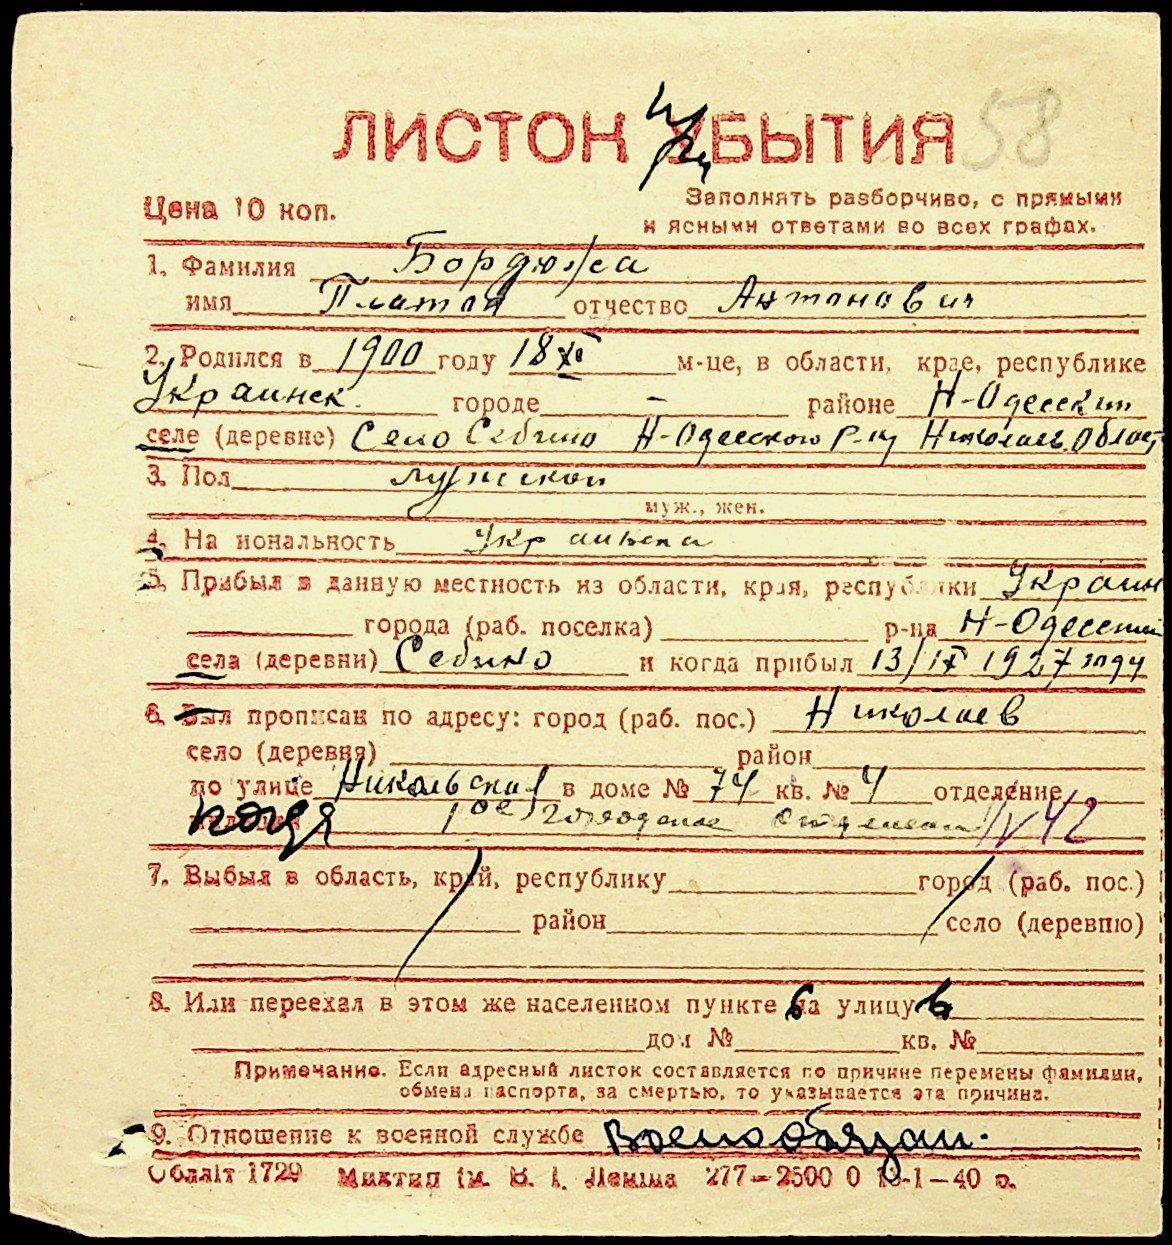 ЛИСТОК УБЫТИЯ 58
Цена 10 коп.
Заполнять разборчиво, с прямыми
и ясными ответами во всех графах.
1. Фамилия Бордюжа
имя Платон отчество Антонович
2. Родился в 1900 году 18 XI м-це, в области, крае, республике
Украинск. городе — районе Н-Одесский
селе (деревне) Село Себино Н-Одесского р-ну Николаев. Област
3. Пол мужской
муж., жен.
4. На иональность украинец
5. Прибыл в данную местность из области, края, республики Украин
города (раб. поселка) р-на Н-Одесский
села (деревни) Себино и когда прибыл 13/IX 1927 году
6. Был прописан по адресу: город (раб. пос.) Николаев
село (деревня) район
по улице Никольская в доме № 74 кв. № 4 отделение
1ое городское отделение N 42
7. Выбыл в область, край, республику город (раб. пос.)
район село (деревню)
8. Или переехал в этом же населенном пункте на улицу
дом № кв. №
Примечание. Если адресный листок составляется по причине перемены фамилии,
обмена паспорта, за смертью, то указывается эта причина.
9. Отношение к военной службе Военообязан.
Облліт 1729 Миктип ім. В. І. Леніна 277—2500 0 -1—40 р.